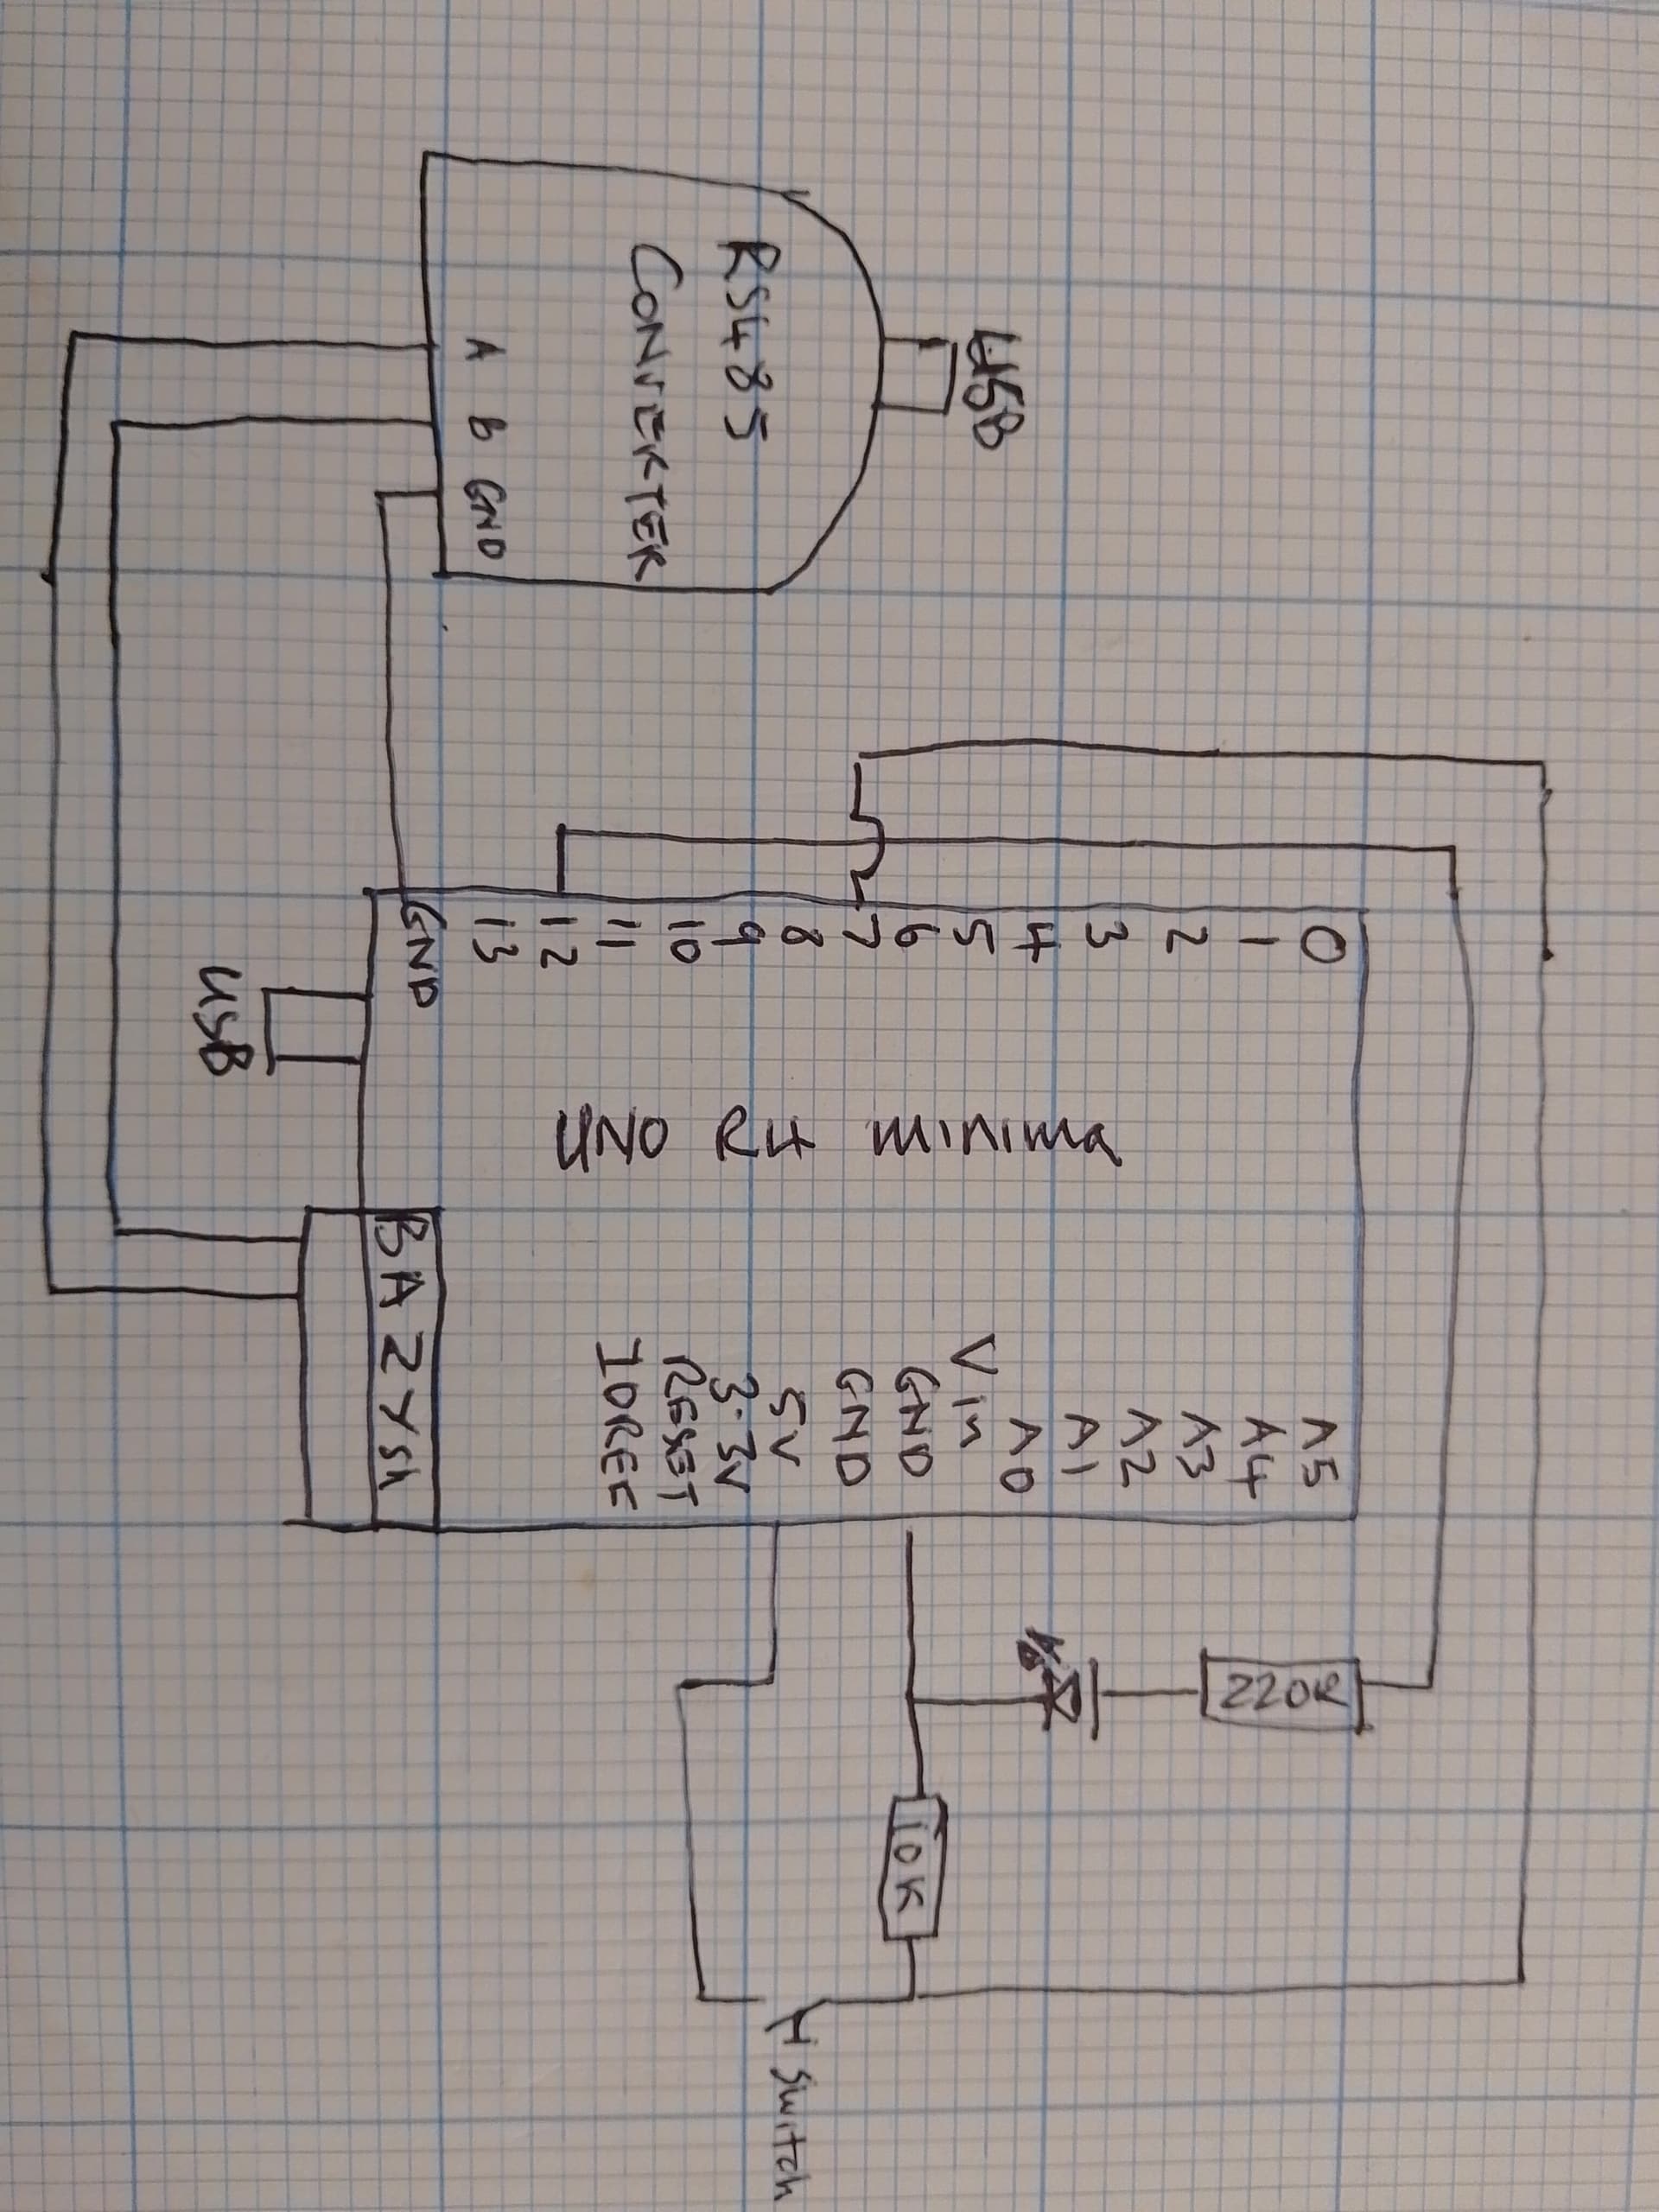 USB
RS485
CONVERTER
A B GND
GND 13 12 11 10 9 8 7 6 5 4 3 2 1 0
USB
UNO R4 minima
B A Z Y Sh
IOREF RESET 3.3V 5V GND GND Vin A0 A1 A2 A3 A4 A5
220R
10K
switch